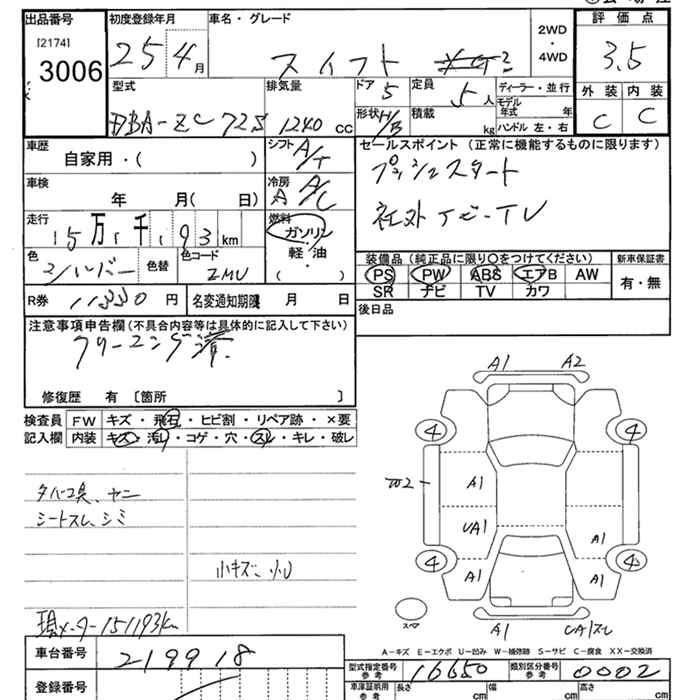 出品番号
[2174]
3006
初度登録年月
25 4月
車名・グレード
スイフト
2WD
・
4WD
評価点
3.5
外装 内装
C C
型式
DBA-ZC72S
排気量
1240 cc
ドア 5
形状 H/B
定員 5人
積載 kg
ディーラー・並行
モデル年式 年
ハンドル 左・右
車歴
自家用・( )
シフト A/T
車検
年 月( 日)
冷房 A A/C
走行
15万1千193km
燃料
ガソリン
軽・油
( )
色 シルバー
色替
色コード ZMU
R券 11330円
名変通知期限 月 日
セールスポイント(正常に機能するものに限ります)
プッシュスタート
社外ナビ-TV
装備品(純正品に限り○をつけてください)
PS PW ABS エアB AW
SR ナビ TV カワ
新車保証書
有・無
後日品
注意事項申告欄(不具合内容等は具体的に記入して下さい)
クリーニング済
修復歴 有〔箇所 〕
検査員
記入欄
FW キズ・飛石・ヒビ割・リペア跡・×要
内装 キズ・汚レ・コゲ・穴・スレ・キレ・破レ
タバコ臭、ヤニ
シートスレ、シミ
小キズ、小U
現メーター151193km
A1 A2
4 4
A1
UA1
A1
A1
A1
4 4
スペア
A1 UA1スレ
A-キズ E-エクボ U-凹み W-補修跡 S-サビ C-腐食 XX-交換済
車台番号
219918
登録番号
型式指定番号 参考
16650
類別区分番号 参考
0002
車庫証明用 参考
長さ cm
幅 cm
高さ cm